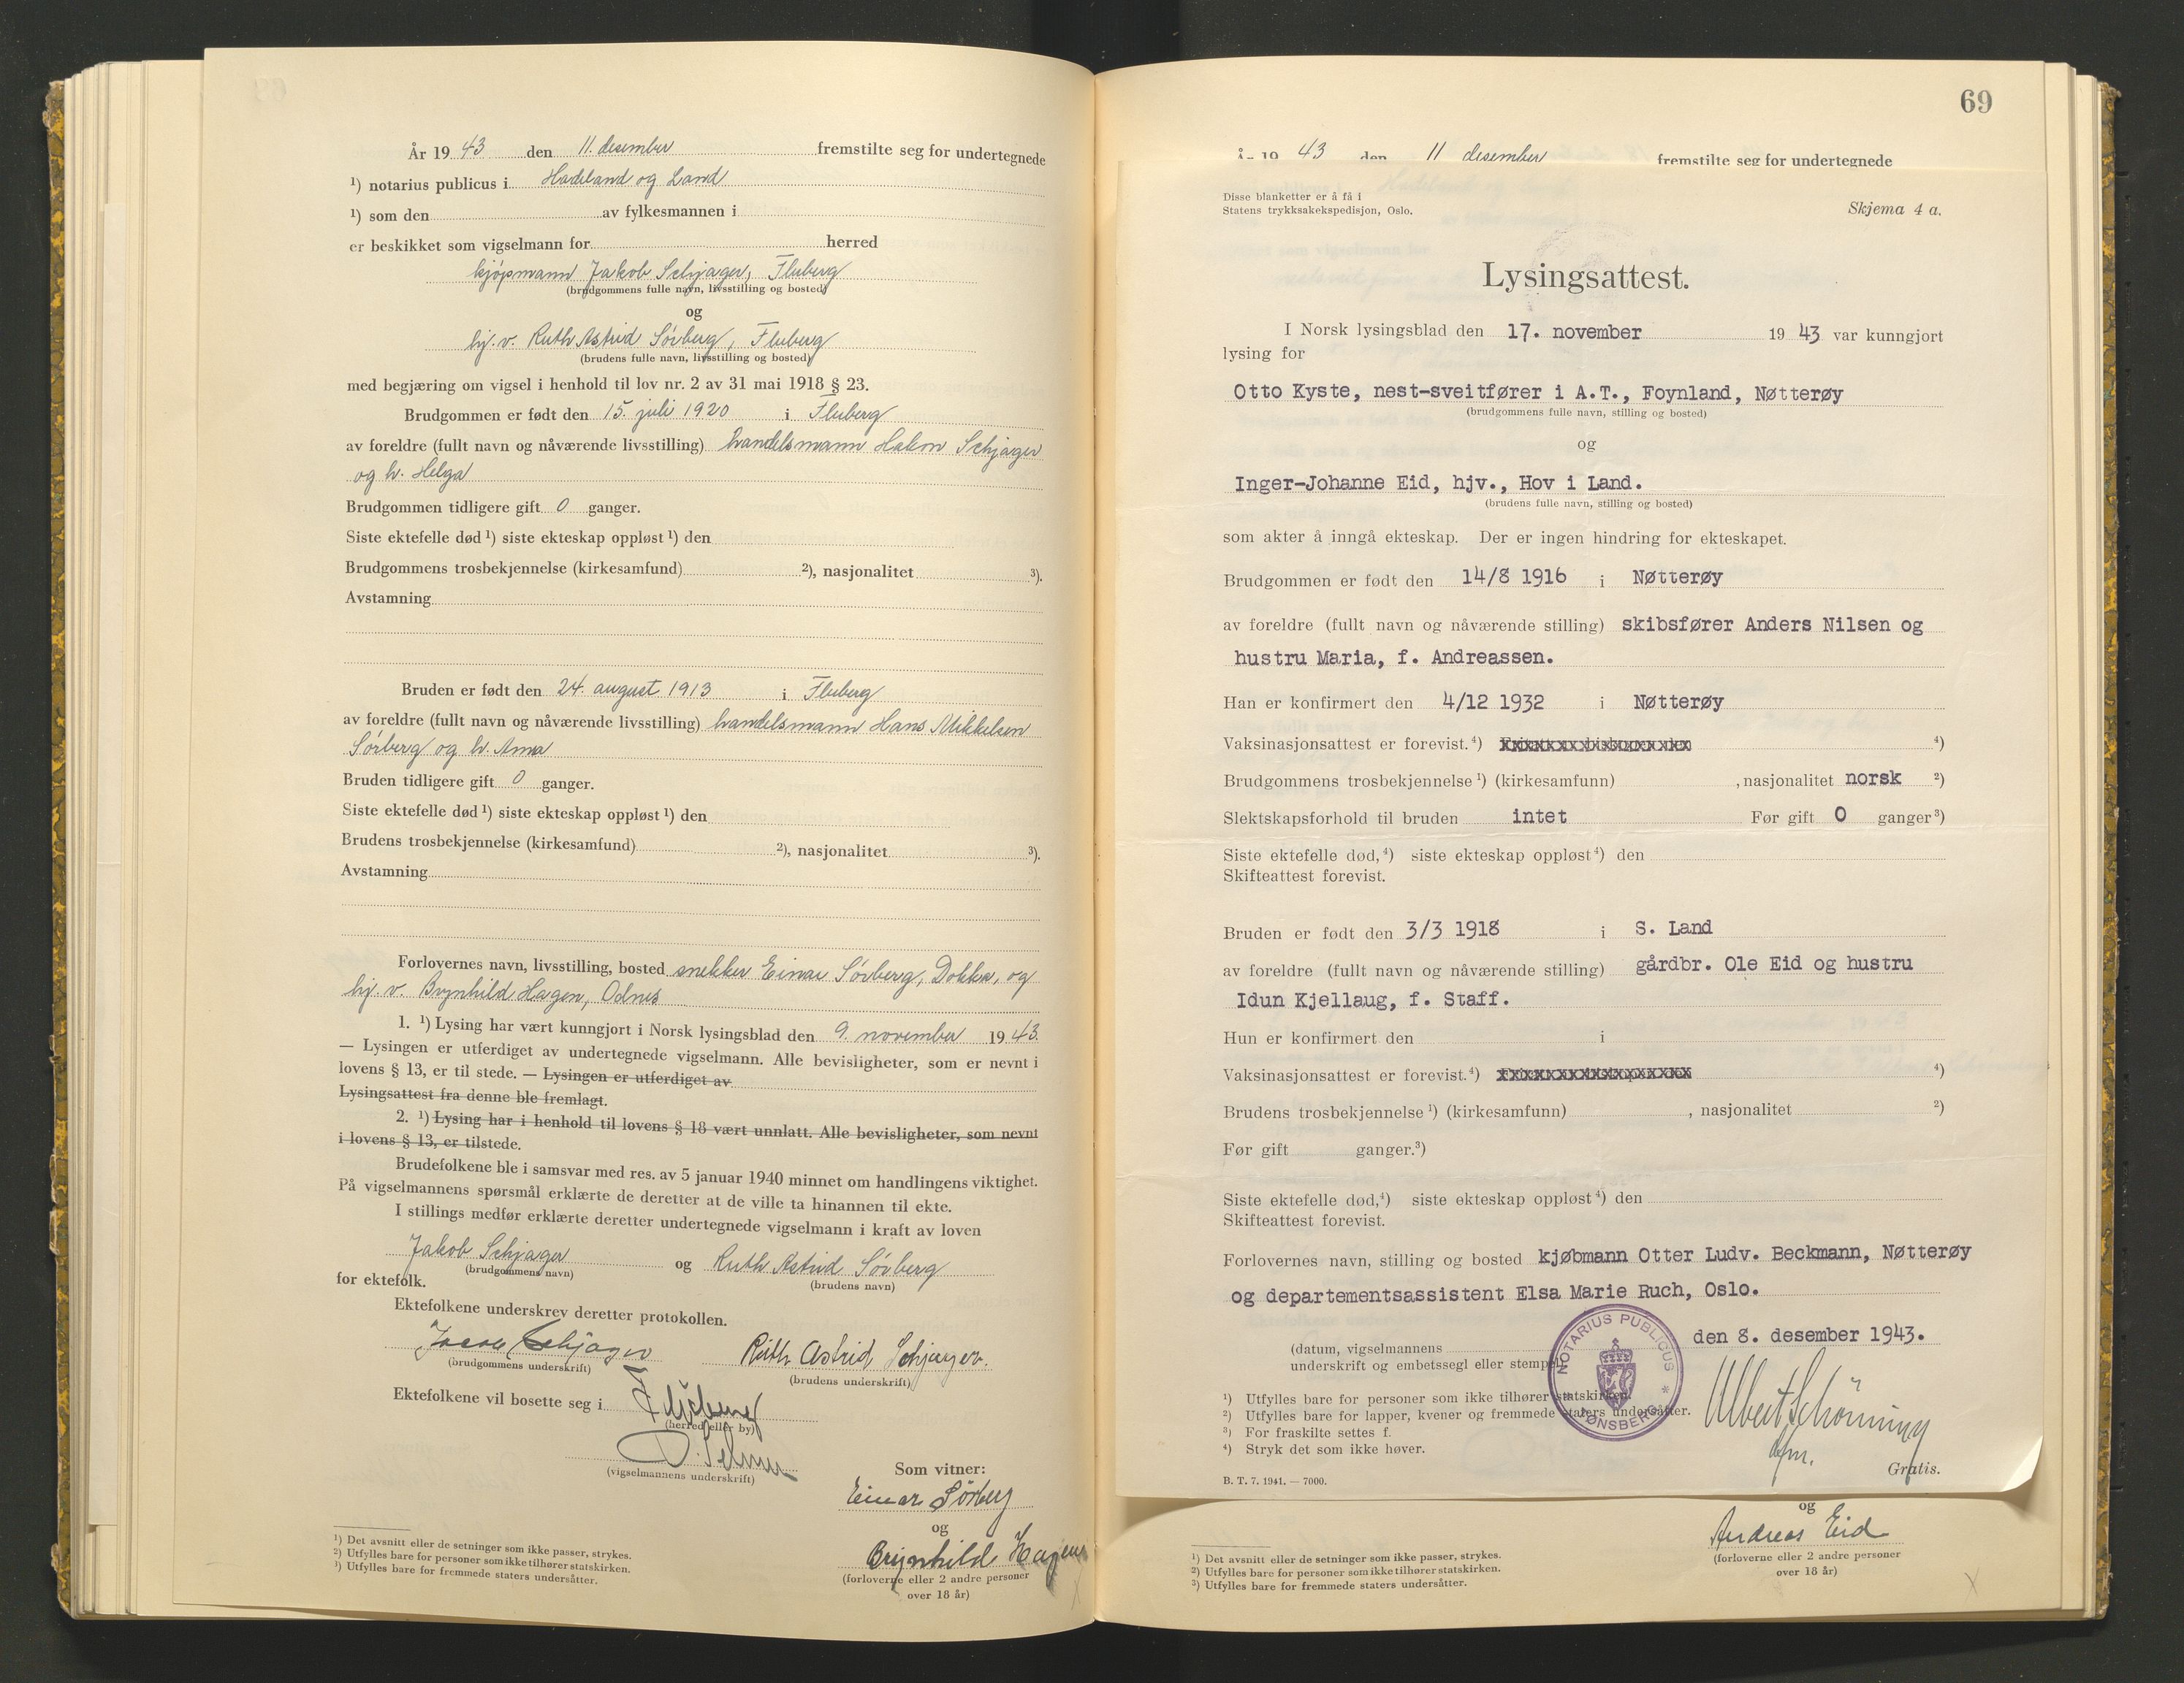 År 19 43 den 11. desember fremstilte seg for undertegnede
¹) notarius publicus i Hadeland og Land
¹) som den av fylkesmannen i
er beskikket som vigselmann for herred
kjøpmann Jakob Schjager, Fluberg
(brudgommens fulle navn, livsstilling og bosted)
og
hj. v. Ruth Astrid Sørberg, Fluberg
(brudens fulle navn, livsstilling og bosted)
med begjæring om vigsel i henhold til lov nr. 2 av 31 mai 1918 § 23.
Brudgommen er født den 15. juli 1920 i Fluberg
av foreldre (fullt navn og nåværende livsstilling) handelsmann Hakon Schjager
og h. Helga
Brudgommen tidligere gift 0 ganger.
Siste ektefelle død¹) siste ekteskap oppløst¹) den
Brudgommens trosbekjennelse (kirkesamfund) ²), nasjonalitet ³).
Avstamning
Bruden er født den 24. august 1913 i Fluberg
av foreldre (fullt navn og nåværende livsstilling) handelsmann Hans Mikkelsen
Sørberg og h. Anna
Bruden tidligere gift 0 ganger.
Siste ektefelle død¹) siste ekteskap oppløst¹) den
Brudens trosbekjennelse (kirkesamfund) ²), nasjonalitet ³).
Avstamning
Forlovernes navn, livsstilling, bosted snekker Einar Sørberg, Dokka, og
hj. v. Brynhild Hagen, Odnes
1. ¹) Lysing har vært kunngjort i Norsk lysingsblad den 9. november 19 43.
— Lysingen er utferdiget av undertegnede vigselmann. Alle bevisligheter, som er nevnt i
lovens § 13, er til stede. — Lysingen er utferdiget av
Lysingsattest fra denne ble fremlagt.
2. ¹) Lysing har i henhold til lovens § 18 vært unnlatt. Alle bevisligheter, som nevnt
i lovens § 13, er tilstede.
Brudefolkene ble i samsvar med res. av 5 januar 1940 minnet om handlingens viktighet.
På vigselmannens spørsmål erklærte de deretter at de ville ta hinannen til ekte.
I stillings medfør erklærte deretter undertegnede vigselmann i kraft av loven
Jakob Schjager og Ruth Astrid Sørberg
(brudgommens navn) (brudens navn)
for ektefolk.
Ektefolkene underskrev deretter protokollen.
Jacob Schjager Ruth Astrid Schjager.
(brudgommens underskrift) (brudens underskrift)
Ektefolkene vil bosette seg i Fluberg
(herred eller by)
(vigselmannens underskrift)
Som vitner:
Einar Sörberg
og
Brynhild Hagen
(forloverne eller 2 andre personer
over 18 år)
¹) Det avsnitt eller de setninger som ikke passer, strykes.
²) Utfylles bare for personer som ikke tilhører statskirken.
³) Utfylles bare for fremmede staters undersåtter.
69
År 19 43 den 11 desember fremstilte seg for undertegnede
Disse blanketter er å få i
Statens trykksakekspedisjon, Oslo.
Skjema 4 a.
Lysingsattest.
I Norsk lysingsblad den 17. november 19 43 var kunngjort
lysing for
Otto Kyste, nest-sveitfører i A.T., Foynland, Nøtterøy
(brudgommens fulle navn, stilling og bosted)
og
Inger-Johanne Eid, hjv., Hov i Land.
(brudens fulle navn, stilling og bosted)
som akter å inngå ekteskap. Der er ingen hindring for ekteskapet.
Brudgommen er født den 14/8 1916 i Nøtterøy
av foreldre (fullt navn og nåværende stilling) skibsfører Anders Nilsen og
hustru Maria, f. Andreassen.
Han er konfirmert den 4/12 1932 i Nøtterøy
Vaksinasjonsattest er forevist.⁴) ⁴)
Brudgommens trosbekjennelse¹) (kirkesamfunn) , nasjonalitet norsk ²)
Slektskapsforhold til bruden intet Før gift 0 ganger³)
Siste ektefelle død,⁴) siste ekteskap oppløst⁴) den
Skifteattest forevist.
Bruden er født den 3/3 1918 i S. Land
av foreldre (fullt navn og nåværende stilling) gårdbr. Ole Eid og hustru
Idun Kjellaug, f. Staff.
Hun er konfirmert den i
Vaksinasjonsattest er forevist.⁴) ⁴)
Brudens trosbekjennelse¹) (kirkesamfunn) , nasjonalitet ²)
Før gift ganger.³)
Siste ektefelle død,⁴) siste ekteskap oppløst⁴) den
Skifteattest forevist.
Forlovernes navn, stilling og bosted kjøbmann Otter Ludv. Beckmann, Nøtterøy
og departementsassistent Elsa Marie Ruch, Oslo.
den 8. desember 1943.
(datum, vigselmannens
underskrift og embetssegl eller stempel)
NOTARIUS PUBLICUS * TØNSBERG *
Albert Schöning
¹) Utfylles bare for personer som ikke tilhører statskirken.
²) Utfylles bare for lapper, kvener og fremmede staters undersåtter.
³) For fraskilte settes f.
⁴) Stryk det som ikke høver.
Gratis.
B. T. 7. 1941. — 7000.
og
Andreas Eid
(forloverne eller 2 andre personer
over 18 år)
¹) Det avsnitt eller de setninger som ikke passer, strykes.
²) Utfylles bare for personer som ikke tilhører statskirken.
³) Utfylles bare for fremmede staters undersåtter.